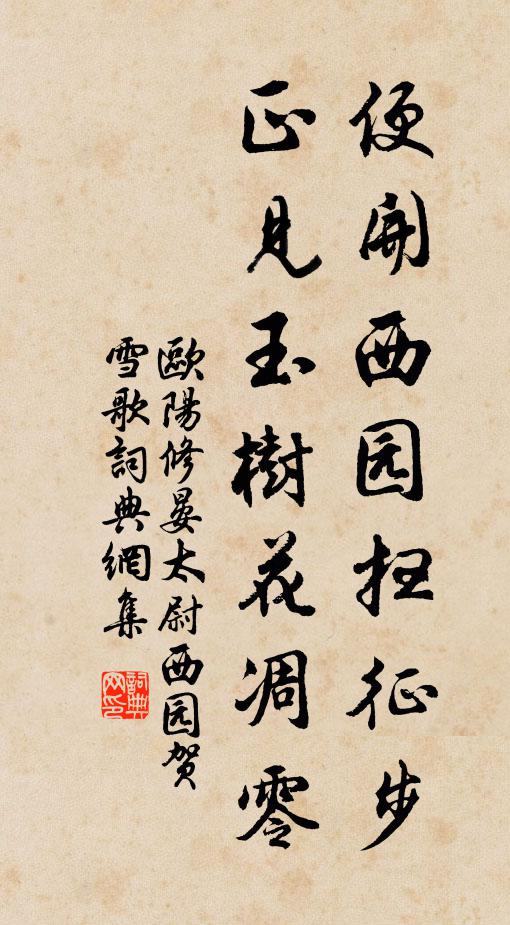 便開西园扫征步
正見玉樹花凋零
歐陽修晏太尉西园贺
雪歌詞典網集
詞典
网印